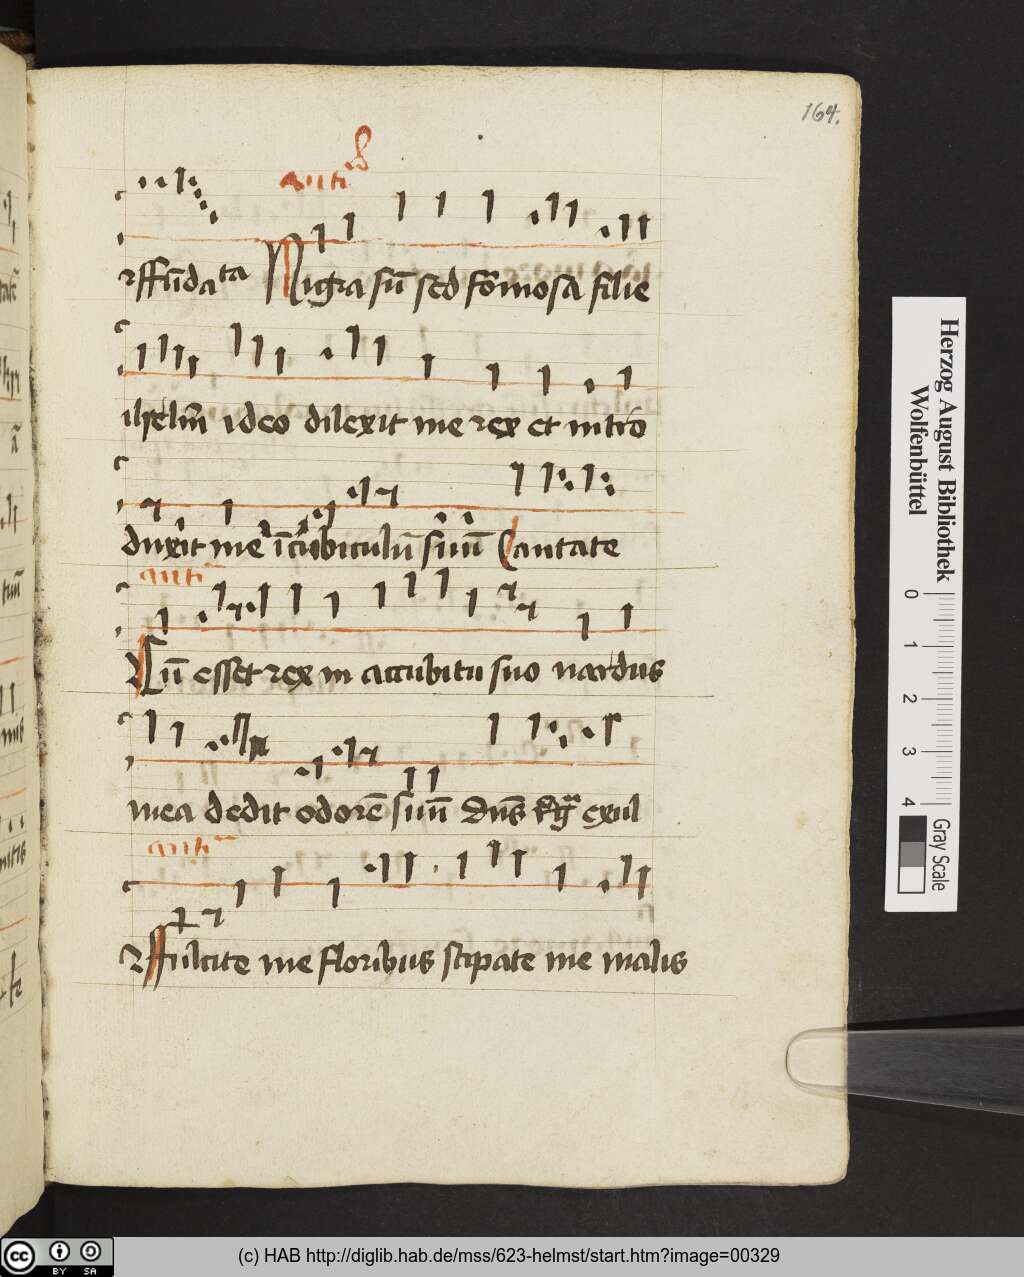 164.
anti
effūdata Nigra sū sed formosa filie
ihrelm̄ ideo dilexit me rex et intro
duxit me ī cubiculū suū Cantate
anti
Cū esset rex in accubitu suo nardus
mea dedit odorē suū Dn̄s regͣ exul
anti
Fulcite me floribus stipate me malis
Herzog August Bibliothek
Wolfenbüttel
0 1 2 3 4
Gray Scale
cc BY SA
(c) HAB http://diglib.hab.de/mss/623-helmst/start.htm?image=00329